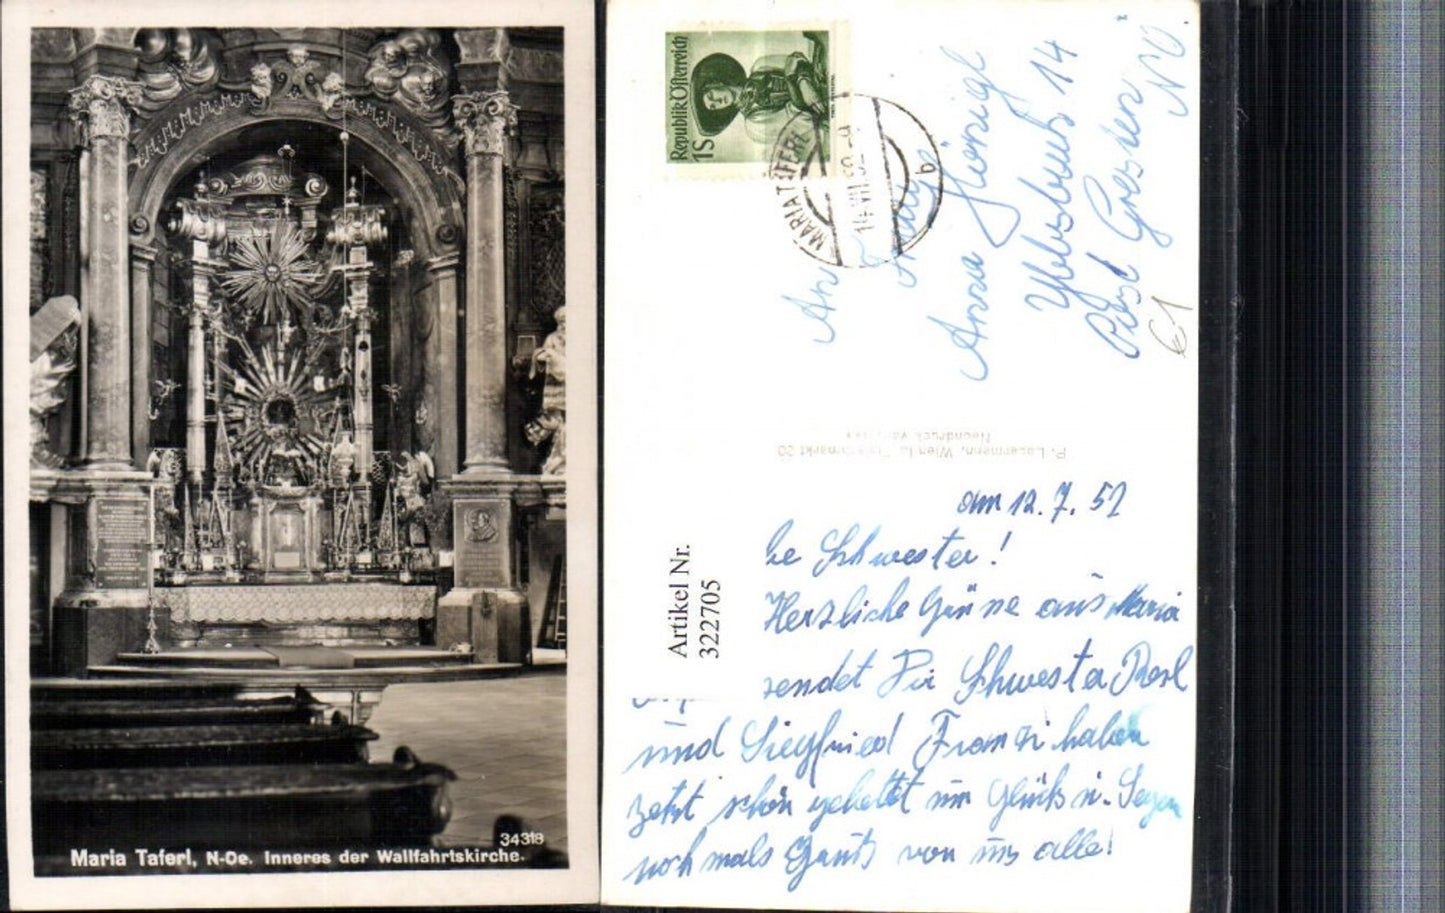 34318
Maria Taferl, N-Oe. Inneres der Wallfahrtskirche.
Republik Österreich
1S
MARIA TAFERL
14.VII.52
b
An
Anna Hönigl
Ybbsbach 14
Post Gresten
NÖ
€1
P. Ledermann, Wien I., 20
Neondruck
Artikel Nr.
322705
am 12.7.52
be Schwester!
Herzliche Grüsse aus Maria
sendet Dir Schwester Resl
und Siegfried Franzi haben
jetzt schon gebettet um Glück u. Segen
nochmals Gruß von uns alle!